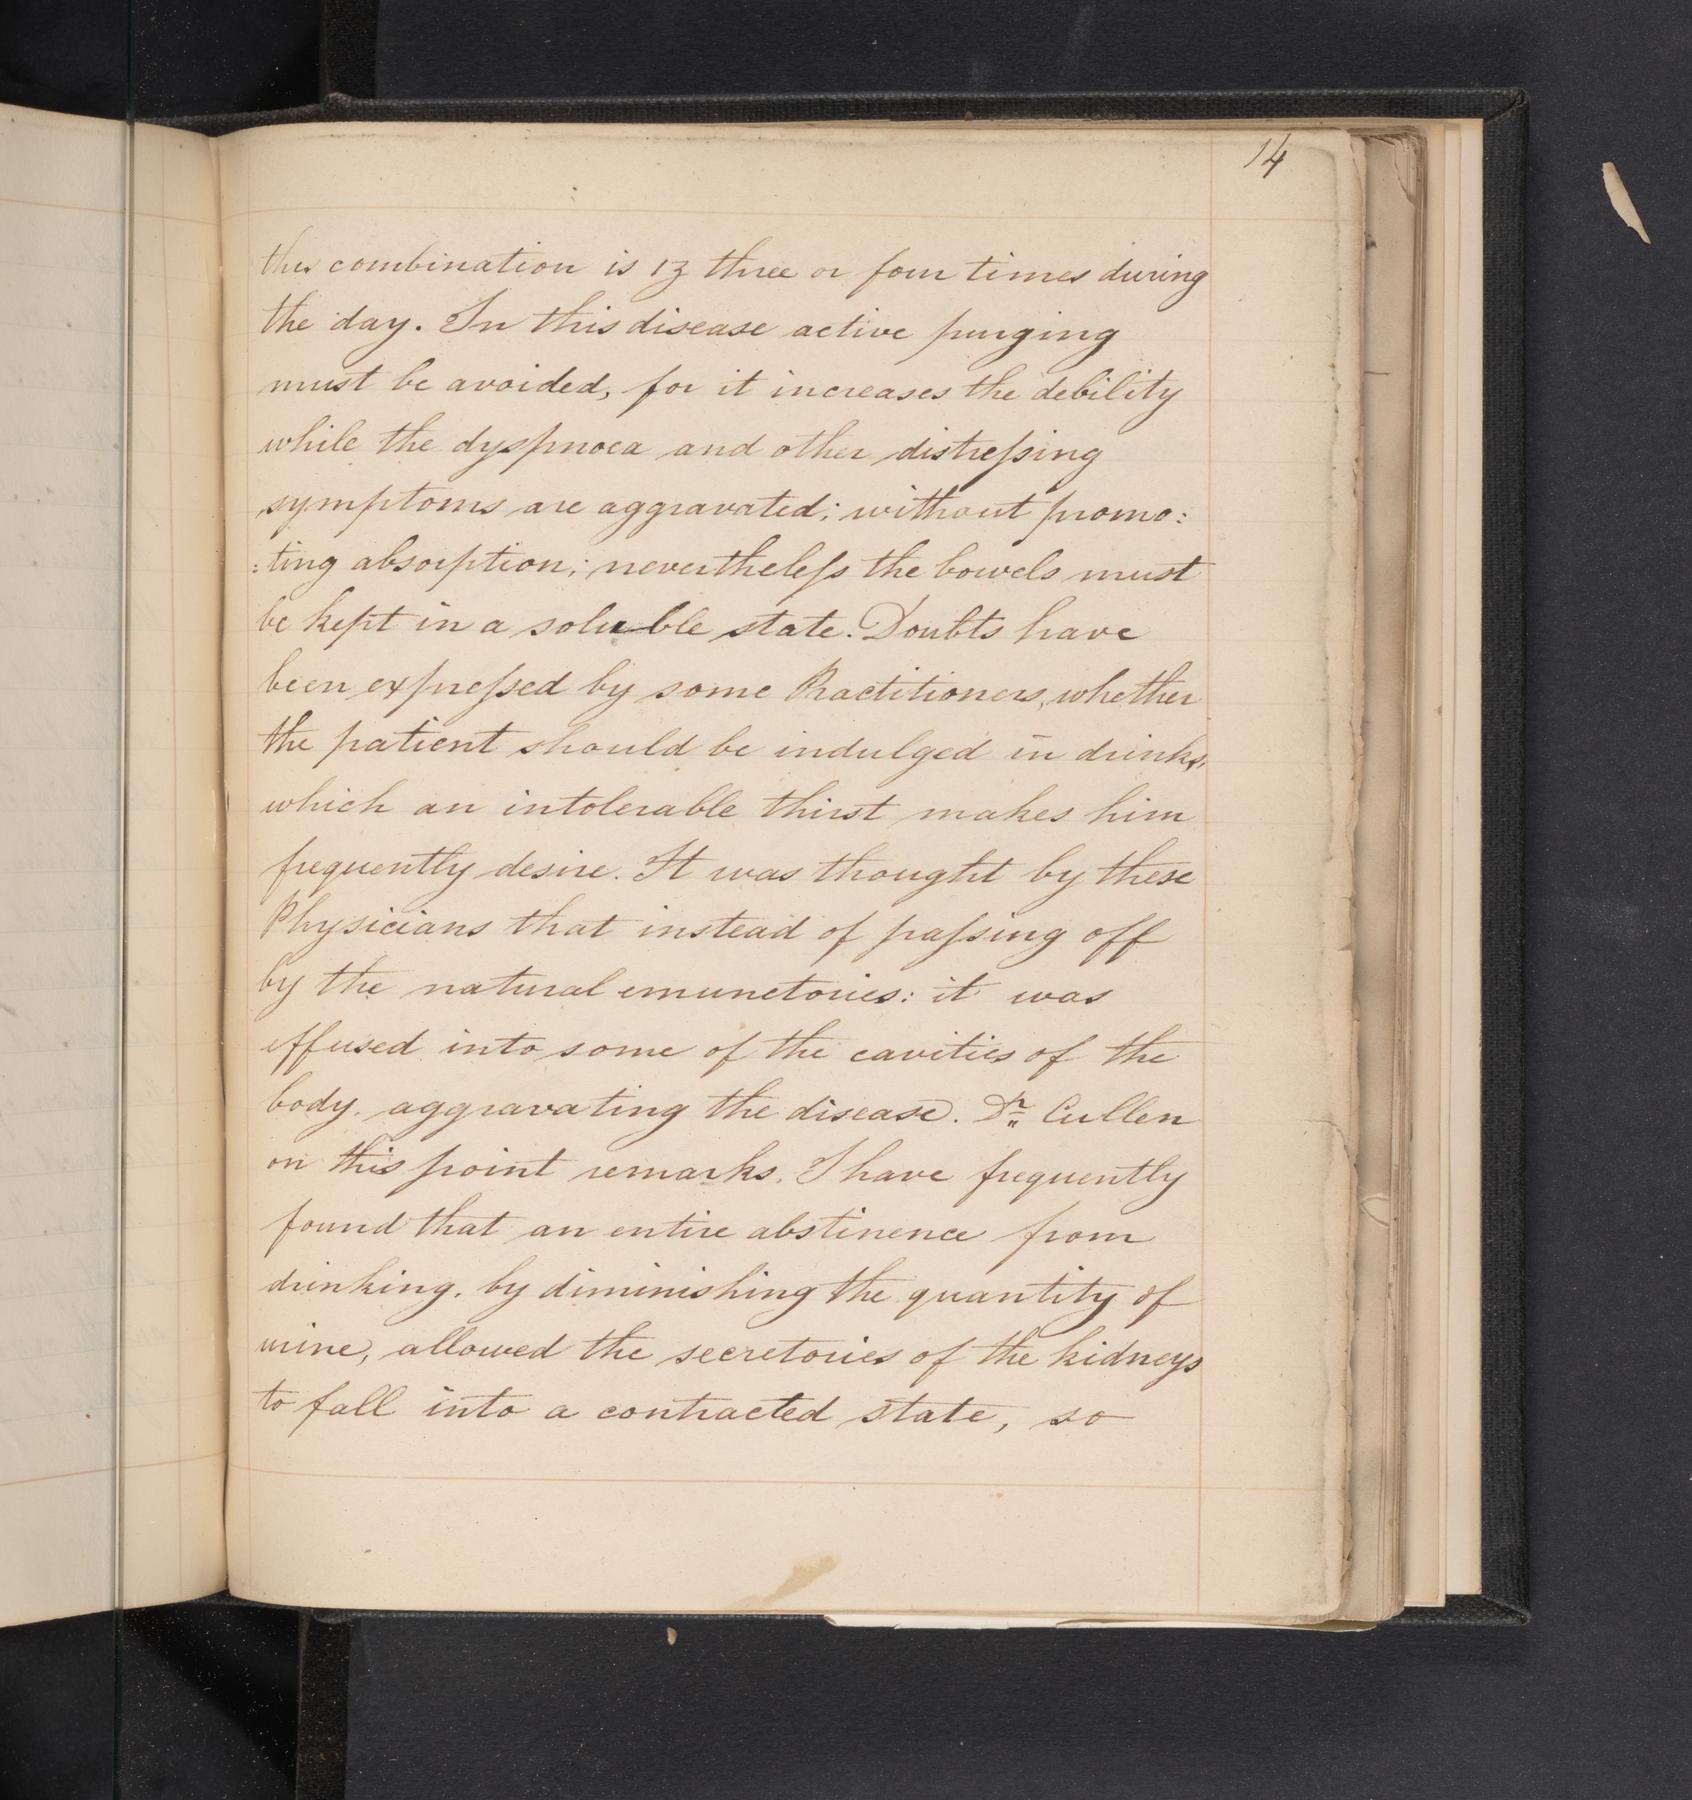 14
this combination is 1ʒ three or four times during
the day. In this disease active purging
must be avoided, for it increases the debility
while the dyspnoea and other distreſsing
symptoms are aggravated; without promo:
:ting absorption; neverthelеſs the bowels must
be kept in a soluble state. Doubts have
been expreſsed by some Practitioners, whether
the patient should be indulged in drinks,
which an intolerable thirst makes him
frequently desire. It was thought by these
Physicians that instead of paſsing off
by the natural emunctories: it was
effused into some of the cavities of the
body, aggravating the disease. Dr. Cullen
on this point remarks. I have frequently
found that an entire abstinence from
drinking, by diminishing the quantity of
urine, allowed the secretories of the kidneys
to fall into a contracted state, so